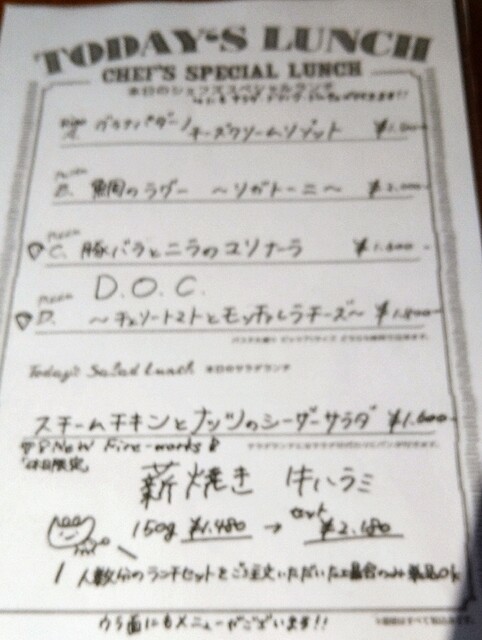 TODAY'S LUNCH
CHEF'S SPECIAL LUNCH
本日のシェフズスペシャルランチ
A. グラナパダーノ
チーズクリームリゾット
Pasta
B. 鯛のラグー ～リガトーニ～ ¥2,000-
Pizza
C. 豚バラとニラの ¥1,600-
Pizza D.O.C.
D. ～チェリートマトとモッツァレラチーズ～ ¥1,800-
Today's Salad Lunch 本日のサラダランチ
スチームチキンとナッツのシーザーサラダ ¥1,600-
New Fire-works
休日限定
薪焼き 牛ハラミ
150g ¥1,480 → セット ¥2,680
人数分のランチセットをご注文いただいた場合のみ単品OK
ウラ面にもメニューがございます!!